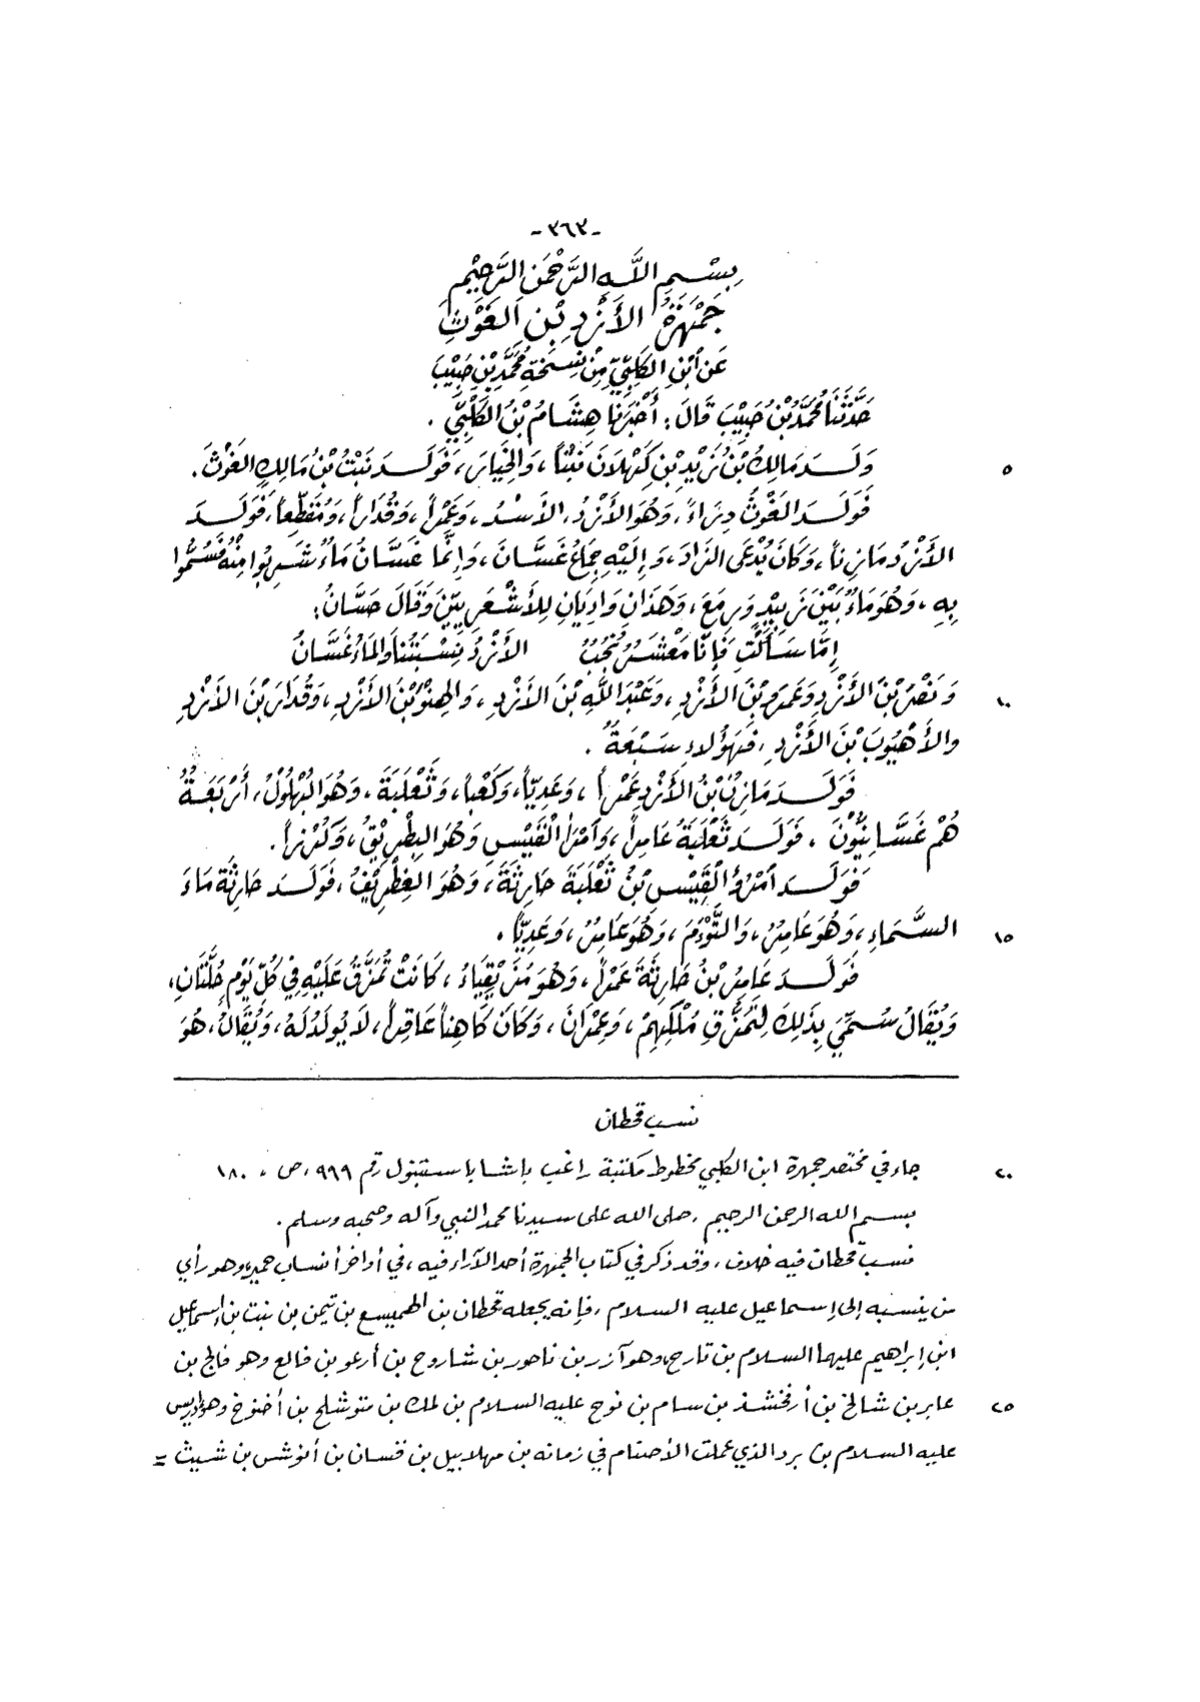 -٣٦٣-
بِسْمِ اللَّهِ الرَّحْمَنِ الرَّحِيْمِ
جَمْهَرَةُ الأَزْدِ بْنِ الغَوْثِ
عَنْ ابْنِ الكَلْبِيِّ مِنْ نُسْخَةِ مُحَمَّدِ بْنِ حَبِيْبَ
حَدَّثَنَا مُحَمَّدُ بْنُ حَبِيْبَ قَالَ: أَخْبَرَنَا هِشَامُ بْنُ الكَلْبِيِّ .
وَلَدَ مَالِكُ بْنُ زَيْدِ بْنِ كَهْلَانَ نَبْتاً، وَالخِيَارَ، فَوَلَدَ نَبْتُ بْنُ مَالِكٍ الغَوْثَ. ٥
فَوَلَدَ الغَوْثُ دِرَاءً، وَهُوَ الأَزْدُ، الأَسْدُ، وَعَمْراً، وَقُدَاراً، وَمُقَطِّعاً، فَوَلَدَ
الأَزْدُ مَازِناً، وَكَانَ يُدْعَى الزَادَ، وَإِلَيْهِ جِمَاعُ غَسَّانَ، وَإِنَّمَا غَسَّانُ مَاءٌ شَرِبُوا مِنْهُ فَسُمُّوا
بِهِ، وَهُوَ مَاءٌ بَيْنَ زَبِيْدٍ وَرِمَعَ، وَهَذَانِ وَادِيَانِ لِلأَشْعَرِيِّيْنَ وَقَالَ حَسَّانُ:
إِمَّا سَأَلْتِ فَإِنَّا مَعْشَرٌ نُجُبٌ الأَزْدُ نِسْبَتُنَا وَالمَاءُ غَسَّانُ
وَنَصْرَ بْنَ الأَزْدِ وَعَمْرَو بْنَ الأَزْدِ، وَعَبْدَ اللَّهِ بْنَ الأَزْدِ، وَالهِنْوَ بْنَ الأَزْدِ، وَقُدَارَ بْنَ الأَزْدِ ١٠
والأَهْيُوبَ بْنَ الأَزْدِ، فَهَؤُلاءِ سَبْعَةٌ .
فَوَلَدَ مَازِنُ بْنُ الأَزْدِ عَمْراً، وَعَدِيّاً، وَكَعْباً، وَثَعْلَبَةَ، وَهُوَ البُهْلُوْلُ، أَرْبَعَةٌ
هُمْ غَسَّانِيُّوْنَ . فَوَلَدَ ثَعْلَبَةُ عَامِراً، وَامْرَأَ القَيْسِ وَهُوَ البِطْرِيْقُ، وَكُرْزاً.
فَوَلَدَ امْرُؤُ القَيْسِ بْنُ ثَعْلَبَةَ حَارِثَةَ، وَهُوَ الغِطْرِيْفُ، فَوَلَدَ حَارِثَةُ مَاءَ
السَّمَاءِ، وَهُوَ عَامِرٌ، وَالتَّوْءَمَ، وَهُوَ عَامِرٌ، وَعَدِيّاً. ١٥
فَوَلَدَ عَامِرُ بْنُ حَارِثَةَ عَمْراً، وَهُوَ مُزَيْقِيَاءُ، كَانَتْ تُمَزَّقُ عَلَيْهِ فِي كُلِّ يَوْمٍ حُلَّتَانِ،
وَيُقَالُ سُمِّيَ بِذَلِكَ لِتَمَزُّقِ مُلْكِهِمْ، وَعِمْرَانَ، وَكَانَ كَاهِناً عَاقِراً، لَا يُولَدُ لَهُ، وَيُقَالُ، هُوَ
نسب قحطان
جاء في مختصر جمهرة ابن الكلبي مخطوط مكتبة راغب باشا باستنبول رقم ٩٩٩، ص ، ١٨٠ ٢٠
بسم الله الرحمن الرحيم . صلى الله على سيدنا محمد النبي وآله وصحبه وسلم .
نسب قحطان فيه خلاف ، وقد ذكر في كتاب الجمهرة أحد الآراء فيه ، في أواخر أنساب حمير، وهو رأي
من ينسبه إلى إسماعيل عليه السلام ، فإنه يجعله قحطان بن الهميسع بن تيمن بن نبت بن إسماعيل
ابن إبراهيم عليهما السلام بن تارح، وهو آزر بن ناحور بن شاروح بن أرعو بن فالع وهو فالج بن
عابر بن شالخ بن أرفخشذ بن سام بن نوح عليه السلام بن لمك بن متوشلح بن أخنوخ وهو إدريس ٢٥
عليه السلام بن يرد الذي عملت الأصنام في زمانه بن مهلاييل بن قسان بن أنوشس بن شيث =